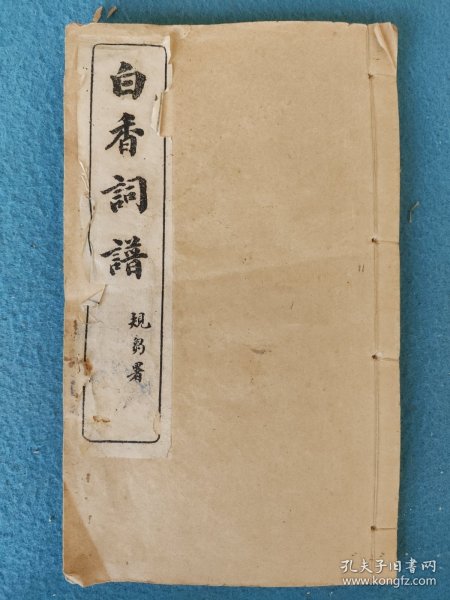 白香詞譜
規易署
孔夫子旧书网
www.kongfz.com